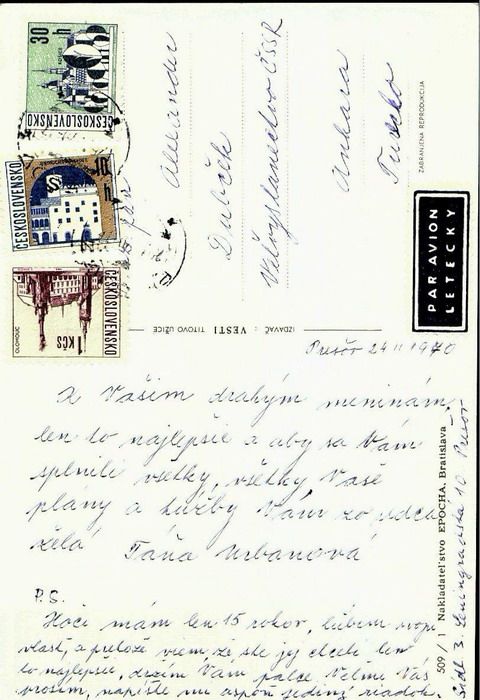 30 h
ČESKOSLOVENSKO
ČESKOSLOVENSKO
h
OLOMOUC
1 Kčs
ČESKOSLOVENSKO
pán
Alexander
Dubček
Veľvyslanectvo ČSSR
Ankara
Turecko
ZABRANJENA REPRODUKCIJA
PAR AVION
LETECKY
IZDAVAČ: VESTI TITOVO UŽICE
Prešov 24 II 1970
K Vašim drahým meninám,
len to najlepšie a aby sa Vám
splnili všetky, všetky Vaše
plány a túžby Vám zo srdca
želá Táňa Urbanová
P.S.
Hoci mám len 15 rokov, ľúbim svoju
vlasť, a pretože viem, že ste jej chceli len
to najlepšie, držím Vám palce. Veľmi Vás
prosím, napíšte mi aspoň jeden riadok.
509 / 1 Nakladateľstvo EPOCHA, Bratislava
Sídl. 3. Leningradská 10 Prešov